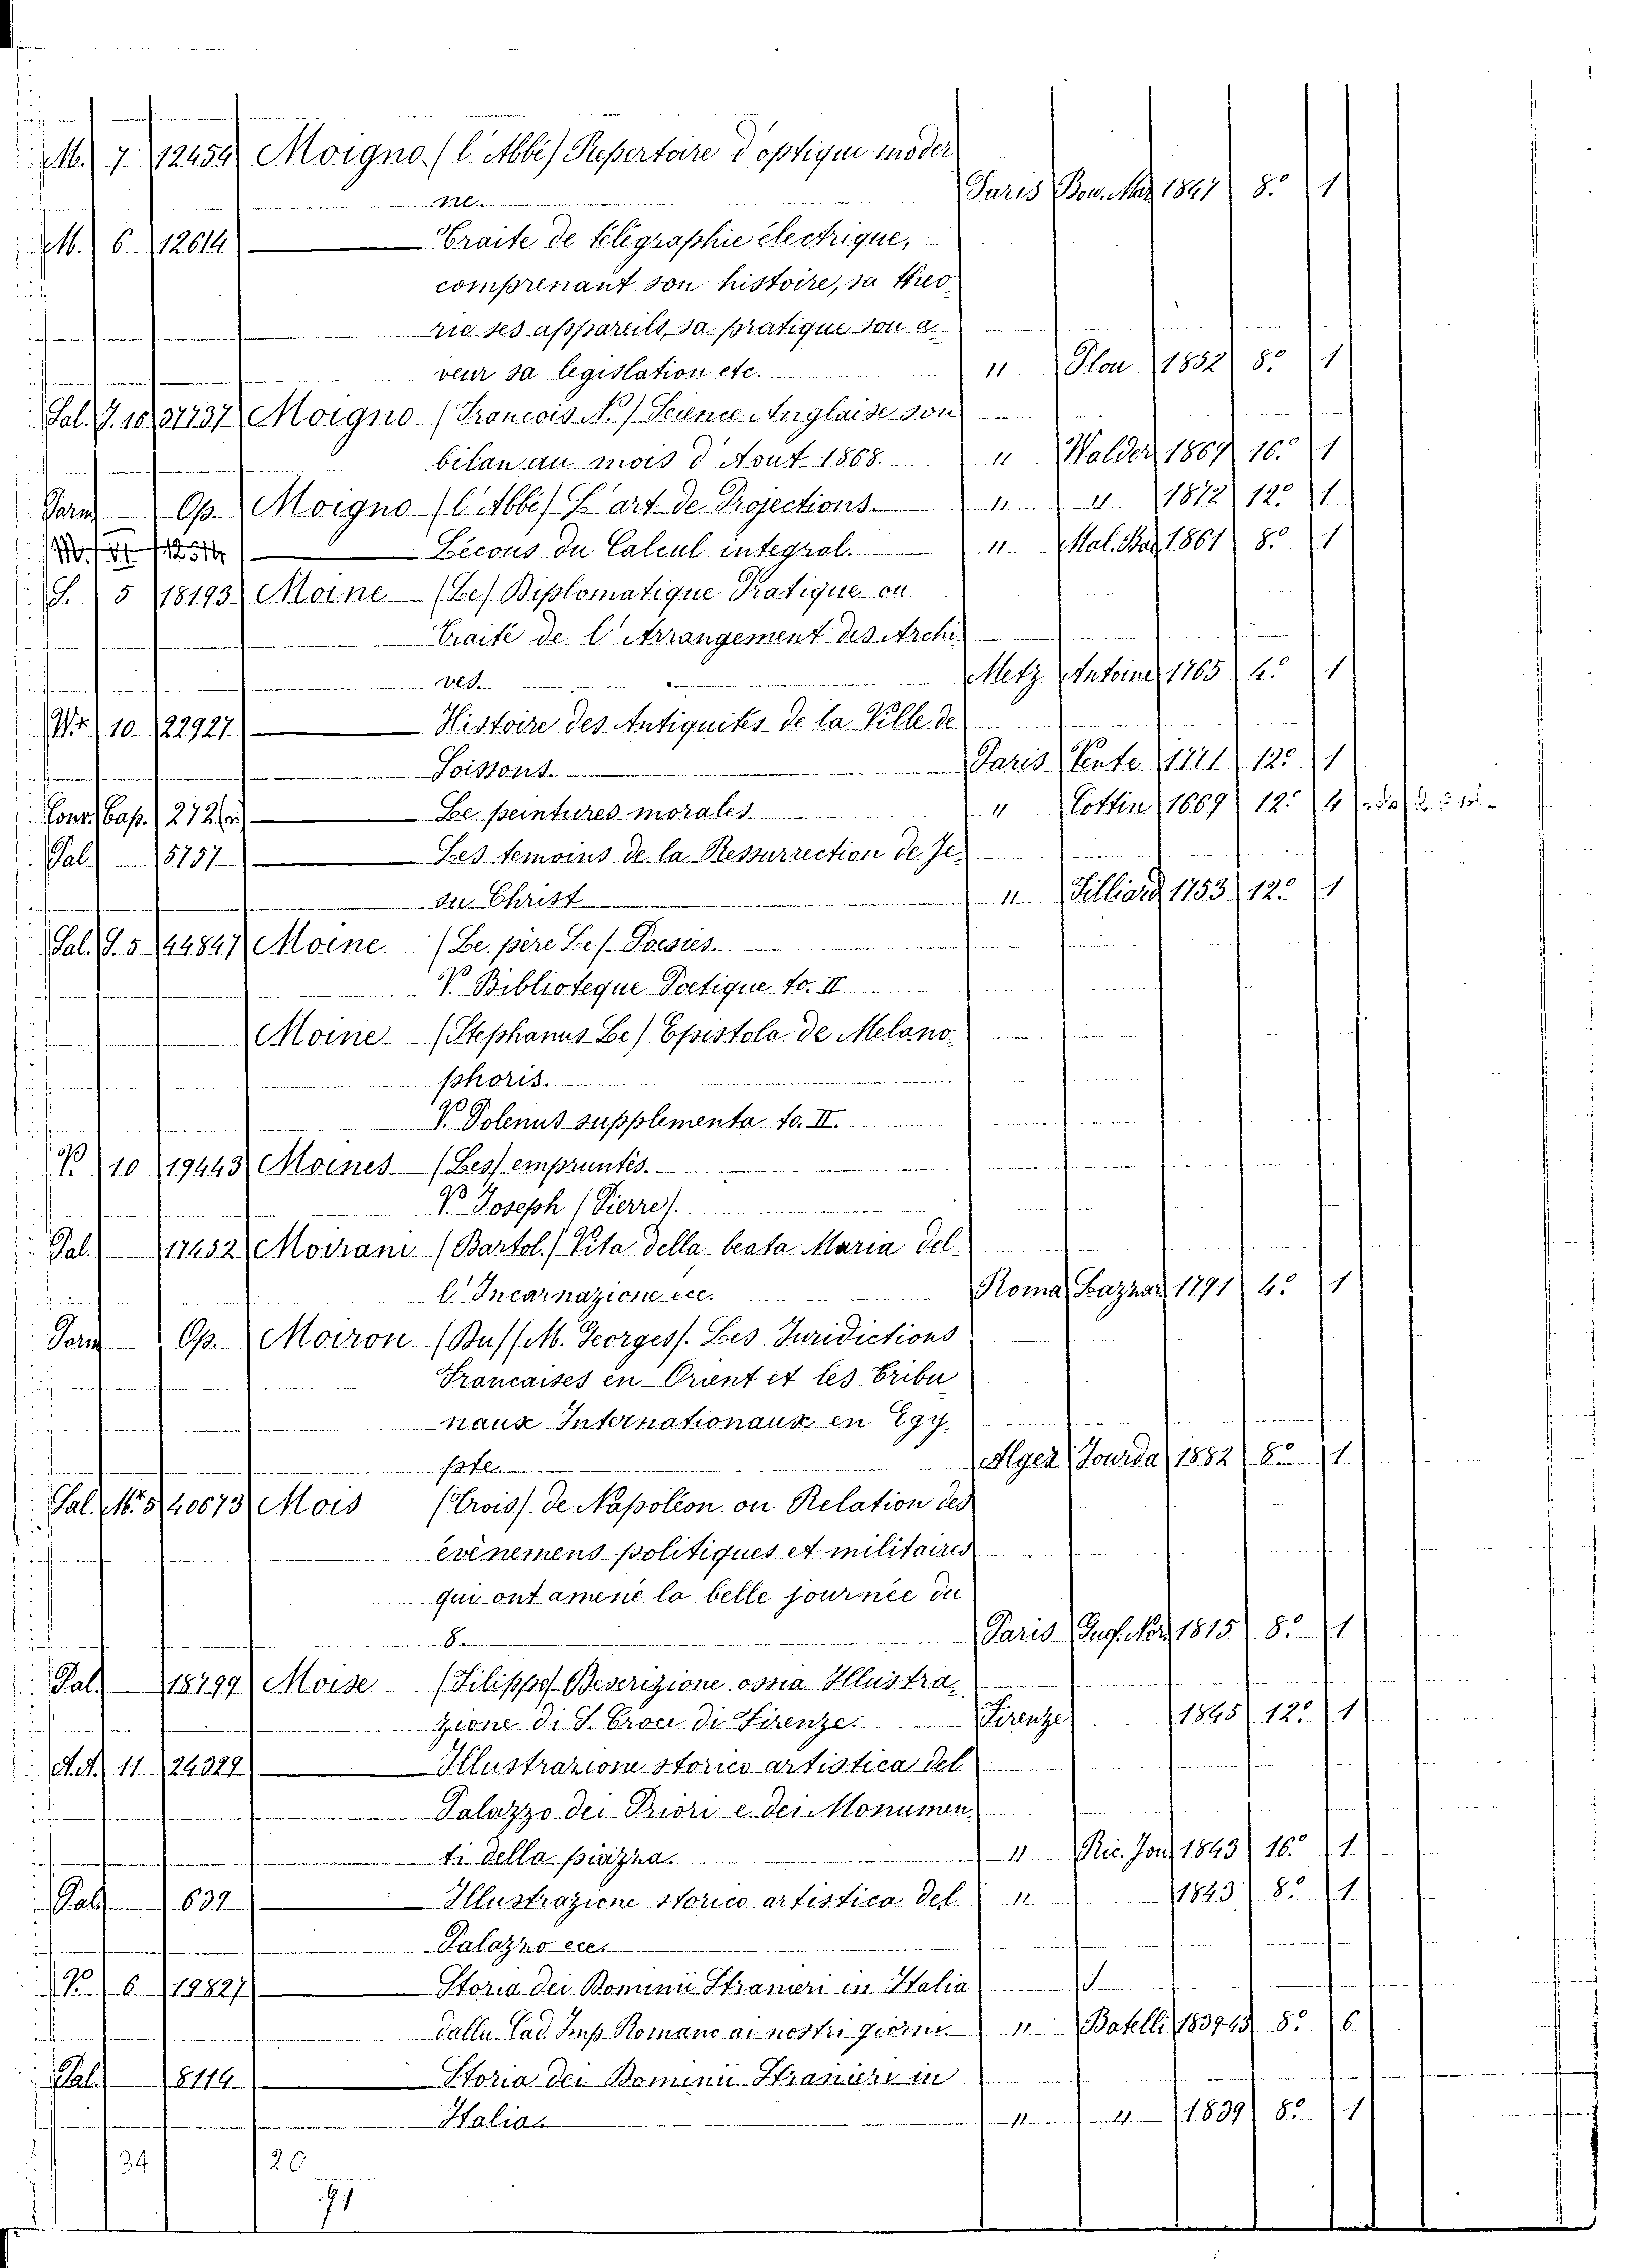 M. 7. 12454 Moigno (l'Abbé) Repertoire d'optique moder
ne Paris 1847 8.° 1
M. 6 12614 — Traite de télégraphie électrique,
comprenant son histoire, sa theo
rie ses appareils, sa pratique son a
veur sa legislation etc. " Plon 1852 8.° 1
Sal. J. 10 31737 Moigno (Francois N.) Science Anglaise son
bilan au mois d'Aout 1868. " Walder 1869 16.° 1
Op. Moigno (l'Abbé) L'art de Projections. " " 1872 12.° 1
Lecons du Calcul integral. " Mal. Bac 1861 8.° 1
S. 5 18193 Moine (Le) Diplomatique Pratique ou
Traité de l'Arrangement des Archi
ves. Metz Antoine 1765 4.° 1
10 22927 — Histoire des Antiquités de la Ville de
Soissons. Paris Vente 1771 12.° 1
Conr. Cap. 272 — Le peintures morales " Cottin 1669 12.° 4
Pal. 5757 — Les temoins de la Ressurrection de Je
su Christ " Tilliard 1753 12.° 1
Sal. J. 5 44847 Moine (Le père Le) Poesies.
V. Biblioteque Poetique to. II
Moine (Stephanus Le) Epistola de Melano
phoris.
V. Polenus supplementa to. II.
V. 10 19443 Moines (Les) empruntés.
V. Joseph (Pierre).
Pal. 17452 Moirani (Bartol.) Vita della beata Maria del
l'Incarnazione ecc. Roma Lazzar 1791 4.° 1
Op. Moiron (Du) (M. Georges). Les Juridictions
Francaises en Orient et les Tribu
naux Internationaux en Egy
pte. Alger Jourda 1882 8.° 1
Sal. M. 5 40673 Mois (Trois) de Napoléon ou Relation des
evènemens politiques et militaires
qui ont amené la belle journée du
8. Paris 1815 8.° 1
Pal. 18499 Moise (Filippo) Descrizione ossia Illustra
zione di S. Croce di Firenze. Firenze 1845 12.° 1
A.A. 11 24329 — Illustrazione storico artistica del
Palazzo dei Priori e dei Monumen
ti della piazza. " Ric. Jou 1843 16.° 1
Pal. 639 — Illustrazione storico artistica del " 1843 8.° 1
Palazzo ecc.
V. 6 19827 — Storia dei Dominii Stranieri in Italia
dalla Cad. Imp. Romano ai nostri giorni " Batelli 183943 8.° 6
Pal. 8114 — Storia dei Dominii Stranieri in
Italia " " 1839 8.° 1
34 26
71